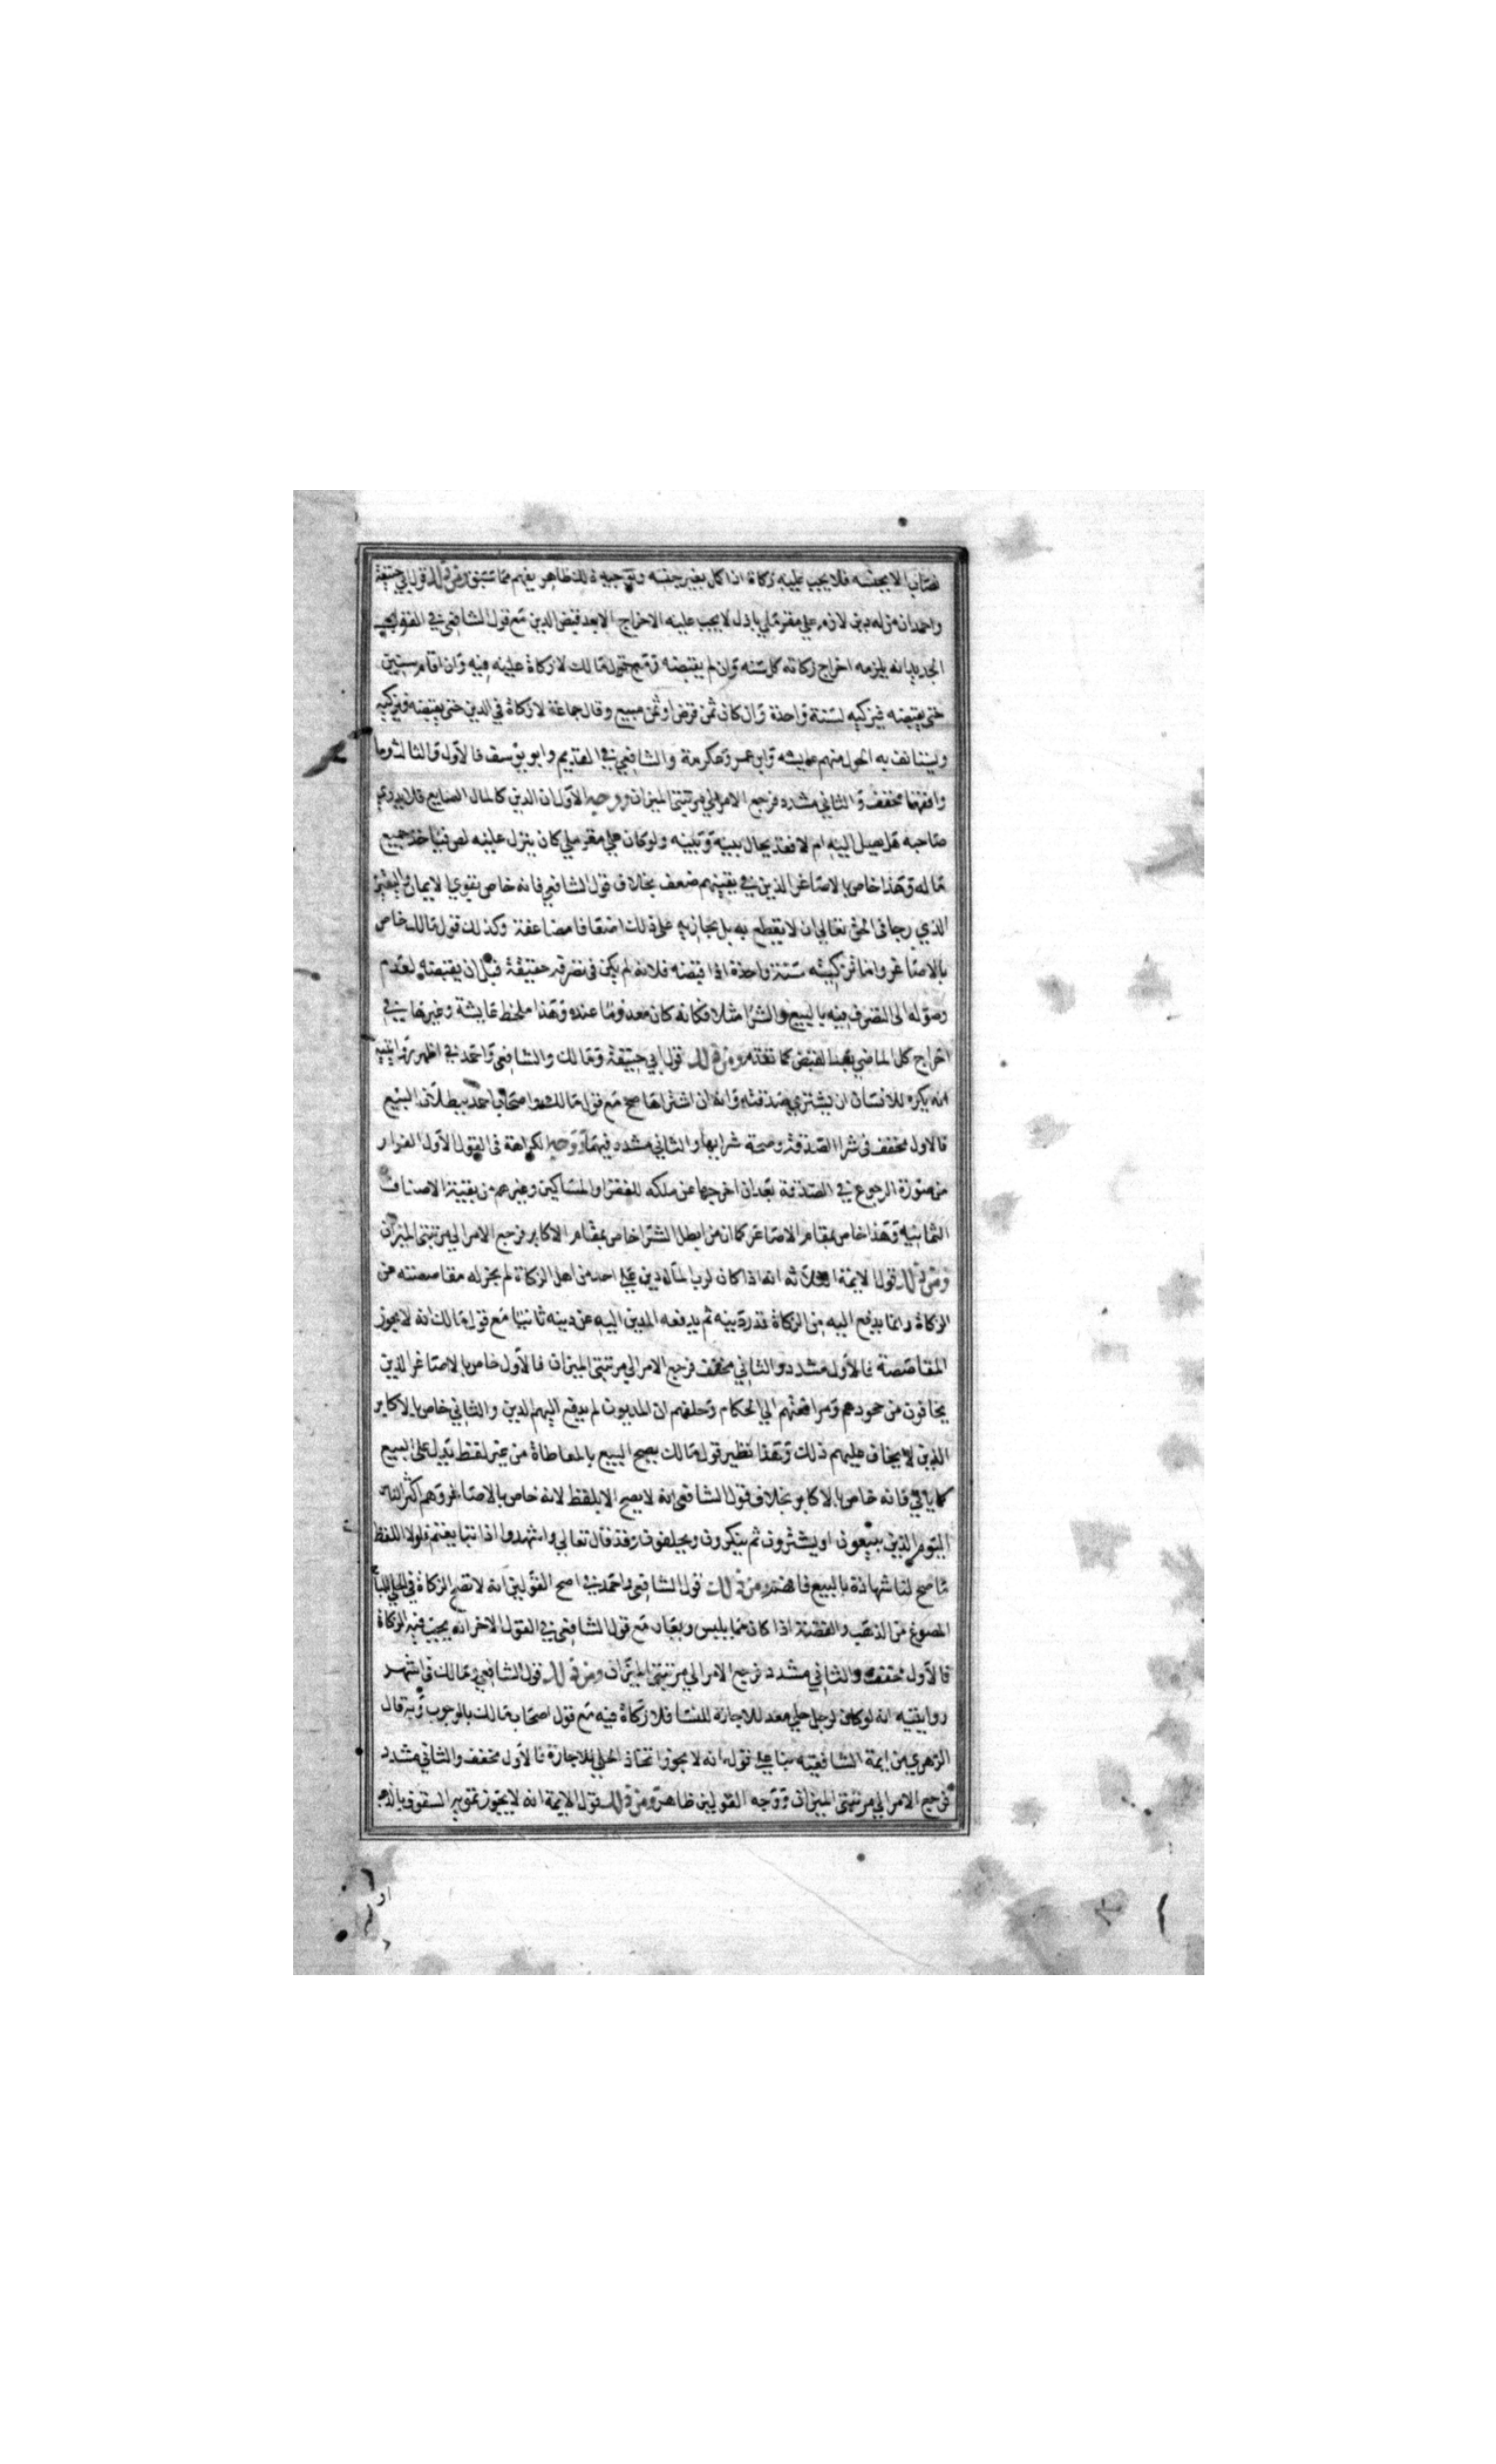 نصابا الا بجنسه فلا يجب عليه زكاة اذا كمل بغير جنسه وتوجيه ذلك ظاهر يفهم مما سبق ومن ذلك قول ابي حنيفة
واحمد ان من له دين لازم علي مقر ملي باذل لا يجب عليه الاخراج الا بعد قبض الدين مع قول الشافعي في القول
الجديد انه يلزمه اخراج زكاته كل سنة وان لم يقبضه ومع قول مالك لا زكاة عليه فيه وان اقام سنين
حتي يقبضه فيزكيه لسنة واحدة وان كان ثمن قرض او ثمن مبيع وقال جماعة لا زكاة في الدين حتي يقبضه ويزكيه
ويستانف به الحول منهم عايشه وابن عمر وعكرمة والشافعي في القديم وابو يوسف فالاول والثالث وما
وافقهما مخفف والثاني مشدد فرجع الامر الي مرتبتي الميزان ووجه الاول ان الدين كالمال الضايع فلا يدري
صاحبه هل يصل اليه ام لا فقد يحال بينه وبينه ولو كان علي مقر ملي كان ينزل عليه لص فياخذ جميع
ماله وهذا خاص بالاصاغر الذين في يقينهم ضعف بخلاف قول الشافعي فانه خاص بقوي الايمان واليقين
الذي رجا في الحق تعالي ان لا يقطع به بل يجازيه علي ذلك اضعافا مضاعفة وكذلك قول مالك خاص
بالاصاغر وانما تزكيته سنة واحدة اذا قبضه فلانه لم يكن في تصرفه حقيقة قبل ان يقبضه لعدم
وصوله الي التصرف فيه بالبيع والشرا مثلا فكانه كان معدوما عنده وهذا ملحظ عايشة وغيرها في
اخراج كل الماضي بعد القبض كما تقدم ومن ذلك قول ابي حنيفة ومالك والشافعي واحمد في اظهر روايتيه
انه يكره للانسان ان يشتري صدقته وانه ان اشتراها صح مع قول مالك واصحاب احمد ببطلان البيع
فالاول مخفف في شرا الصدقة وصحة شرايها والثاني مشدد فيهما ووجه الكراهة في القول الاول الفرار
من صورة الرجوع في الصدقة بعد ان اخرجها عن ملكه للفقرا والمساكين وغيرهم من بقية الاصناف
الثمانيه وهذا خاص بمقام الاصاغر كما ان من ابطل الشرا خاص بمقام الاكابر فرجع الامر الي مرتبتي الميزان
ومن ذلك قول الايمة الثلاثه انه اذا كان لرب المال دين علي احد من اهل الزكاة لم يجز له مقاصصته من
الزكاة وانما يدفع اليه من الزكاة قدر دينه ثم يدفعه المدين اليه عن دينه ثانيا مع قول مالك انه لا يجوز
المقاصصة فالاول مشدد والثاني مخفف فرجع الامر الي مرتبتي الميزان فالاول خاص بالاصاغر الذين
يخافون من جحودهم ومرافعتهم الي الحكام وحلفهم ان المديون لم يدفع اليهم الدين والثاني خاص بالاكابر
الذين لا يخاف عليهم ذلك وهذا نظير قول مالك يصح البيع بالمعاطاة من غير لفظ يدل علي البيع
كما ياتي فانه خاص بالاكابر بخلاف قول الشافعي انه لا يصح الا بلفظ لانه خاص بالاصاغر وهم اكثر الناس
اليوم الذين يبيعون او يشترون ثم ينكرون ويحلفون وقد قال تعالي واشهدوا اذا تبايعتم فلولا اللفظ
ما صح لنا شهادة بالبيع فافهم ومن ذلك قول الشافعي واحمد في اصح القولين انه لا تصح الزكاة في الحلي المباح
المصوغ من الذهب والفضة اذا كان مما يلبس ويعار مع قول الشافعي في القول الاخر انه يجب فيه الزكاة
فالاول مخفف والثاني مشدد فرجع الامر الي مرتبتي الميزان ومن ذلك قول الشافعي ومالك في اشهر
روايتيه انه لو كان لرجل حلي معد للاجارة للنسا فلا زكاة فيه مع قول اصحاب مالك بالوجوب وبه قال
الزهري من ايمة الشافعيه بنا علي قوله انه لا يجوز اتخاذ الحلي للاجارة فالاول مخفف والثاني مشدد
فرجع الامر الي مرتبتي الميزان ووجه القولين ظاهر ومن ذلك قول الايمة انه لا يجوز تمويه السقوف بالذهب